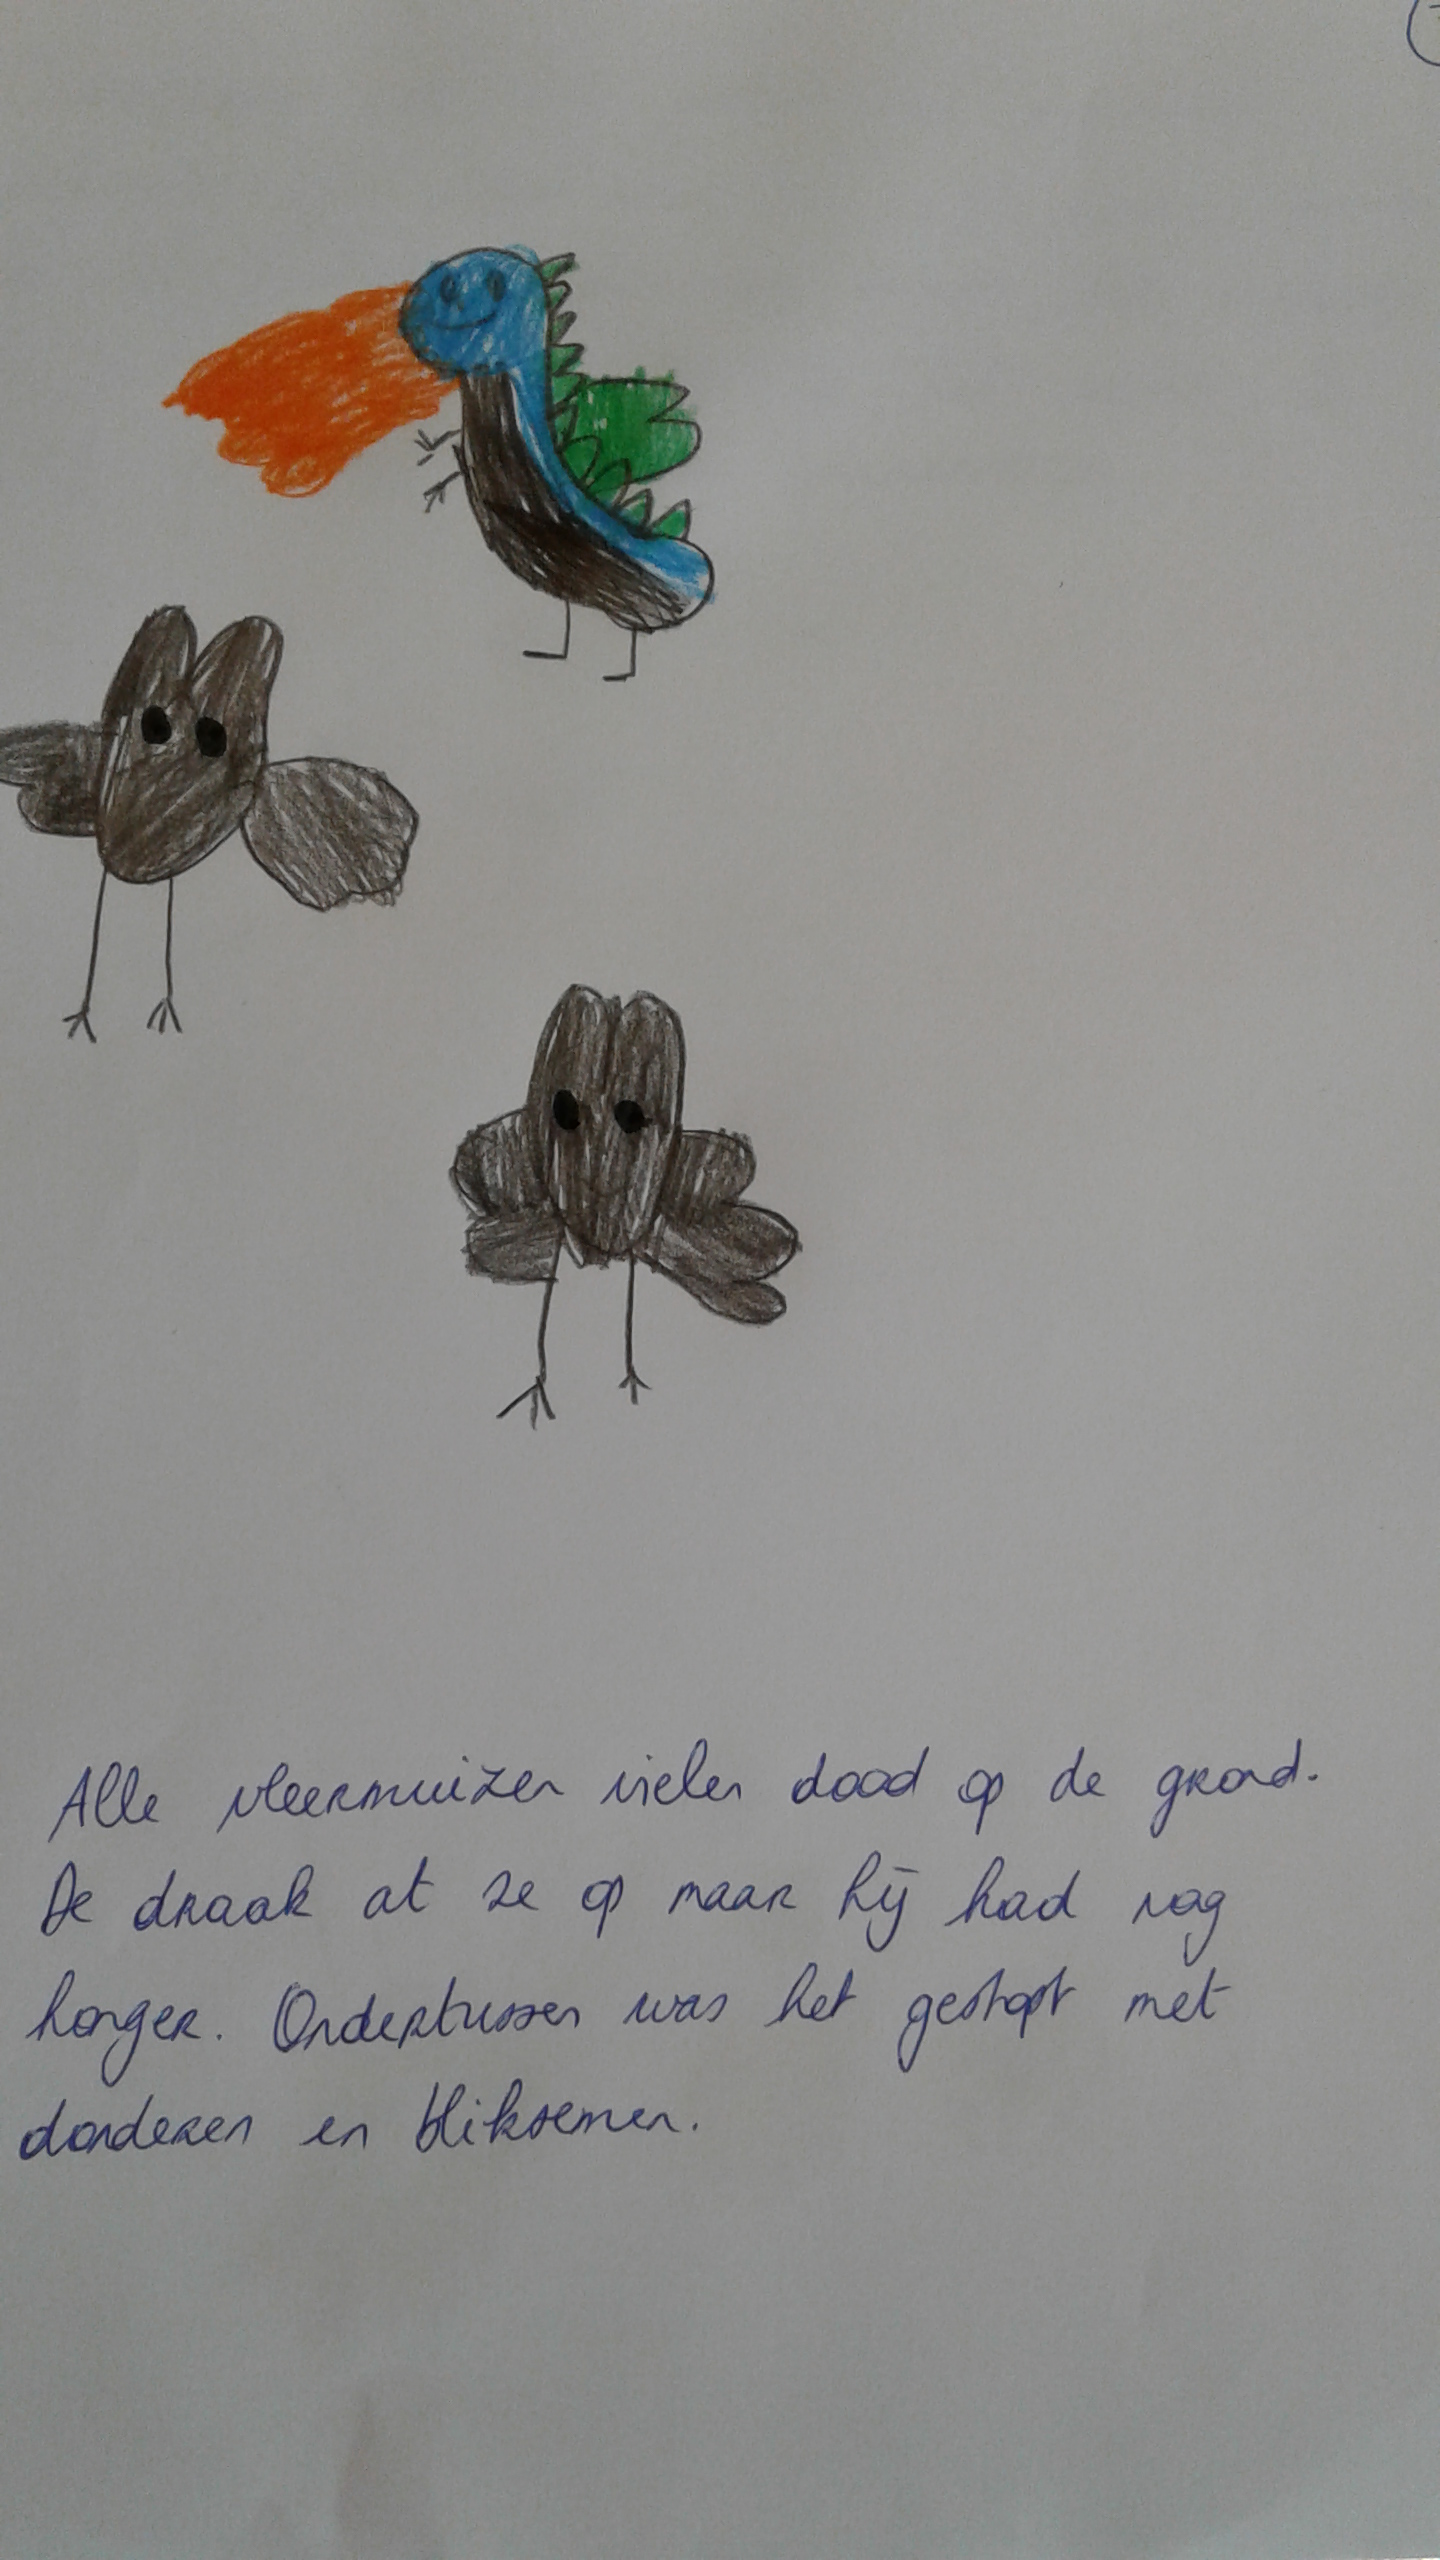 Alle vleermuizen vielen dood op de grond.
De draak at ze op maar hij had nog
honger. Ondertussen was het gestopt met
donderen en bliksemen.